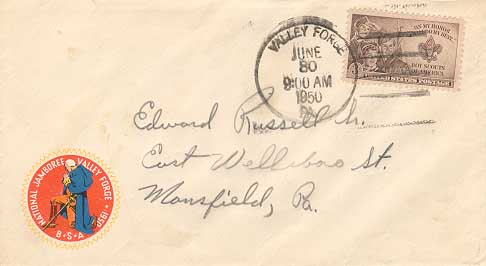 VALLEY FORGE
JUNE
30
9:00 AM
1950
PA.
ON MY HONOR
I WILL DO MY BEST...
BOY SCOUTS
OF AMERICA
UNITED STATES POSTAGE
Edward Russell Sr.
East Wellsboro St.
Mansfield, Pa.
NATIONAL JAMBOREE VALLEY FORGE • 1950 •
B • S • A